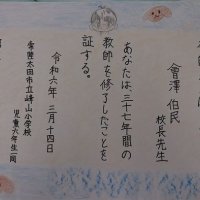 會澤 伯民
校長先生
あなたは、三十七年間の
教師を修了したことを
証する。
令和六年 三月十四日
常陸太田市立峰山小学校
児童六年生一同